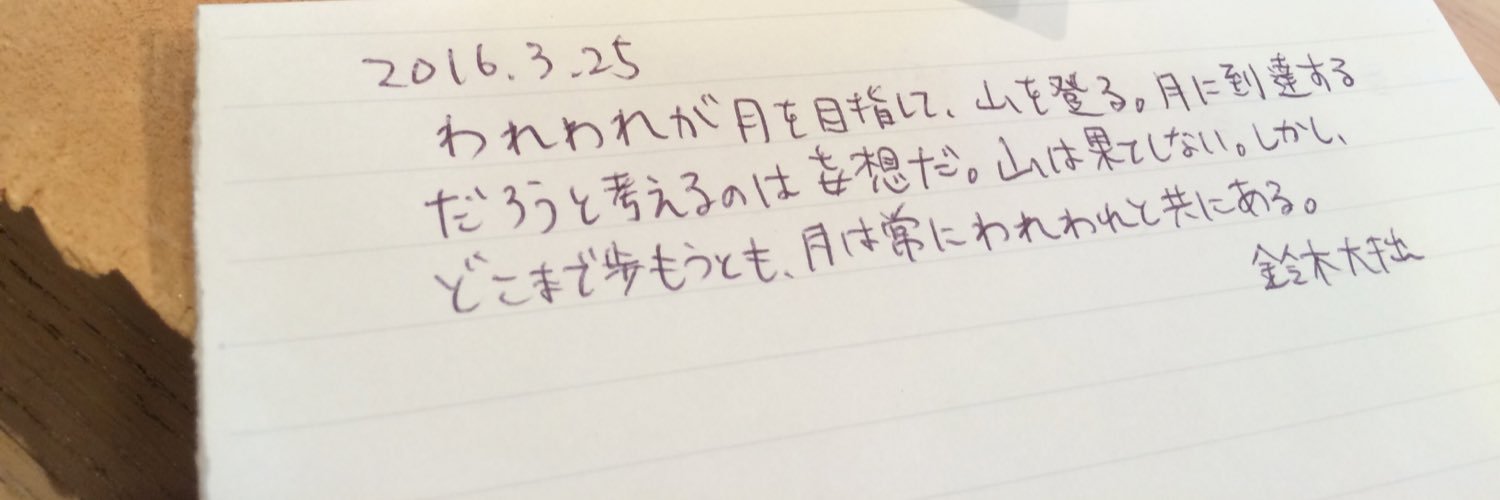 2016.3.25
われわれが月を目指して、山を登る。月に到達する
だろうと考えるのは妄想だ。山は果てしない。しかし、
どこまで歩もうとも、月は常にわれわれと共にある。
鈴木大拙